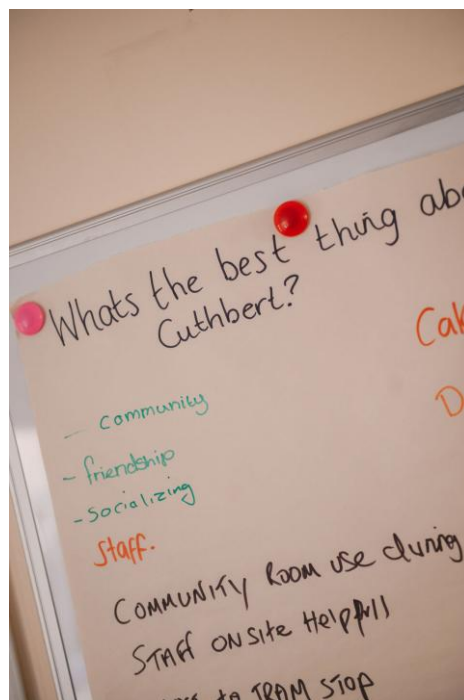 Whats the best thing abo
Cuthbert?
Cak
D
- community
- friendship
- socializing
Staff.
COMMUNITY ROOM USE during
STAFF ONSITE Helpfull
to TRAM STOP